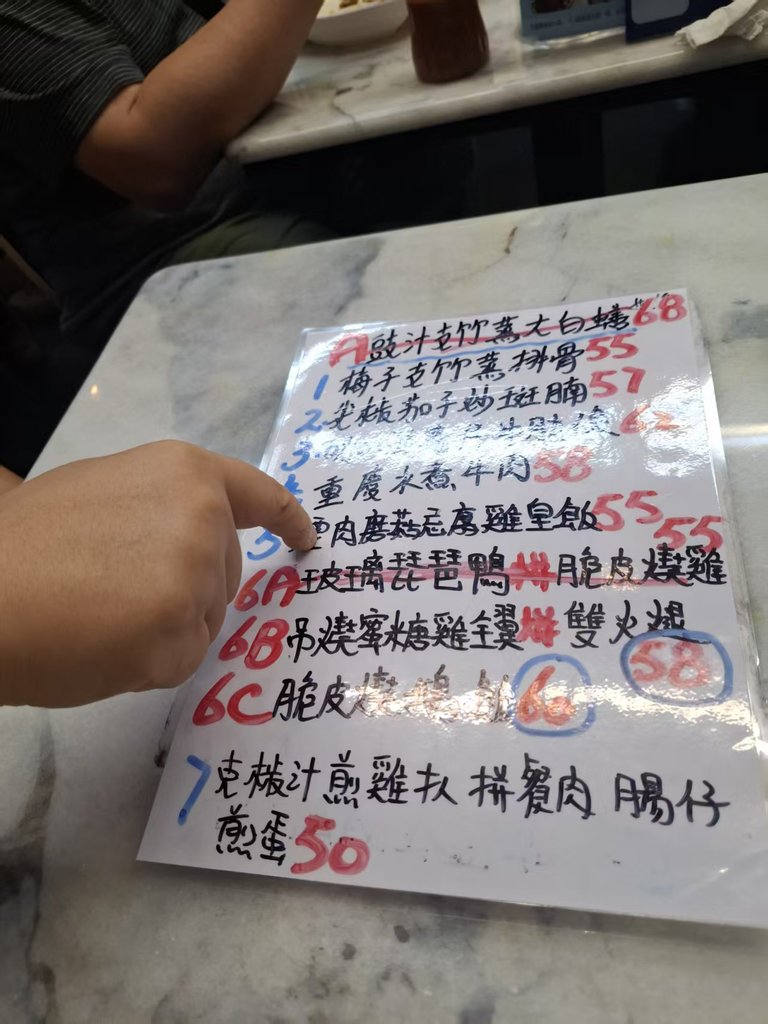 A豉汁支竹蒸大白鱔68
1 梅子支竹蒸排骨55
2.尖椒茄子炒斑腩57
3. 牛 62
重慶水煮牛肉58
5 肉蘑菇忌廉雞皇飯55
6A玻璃琵琶鴨拼脆皮燒雞55
6B吊燒蜜糖雞全翼拼雙火 58
6C脆皮燒 60
7 克椒汁煎雞扒拼餐肉腸仔
煎蛋50